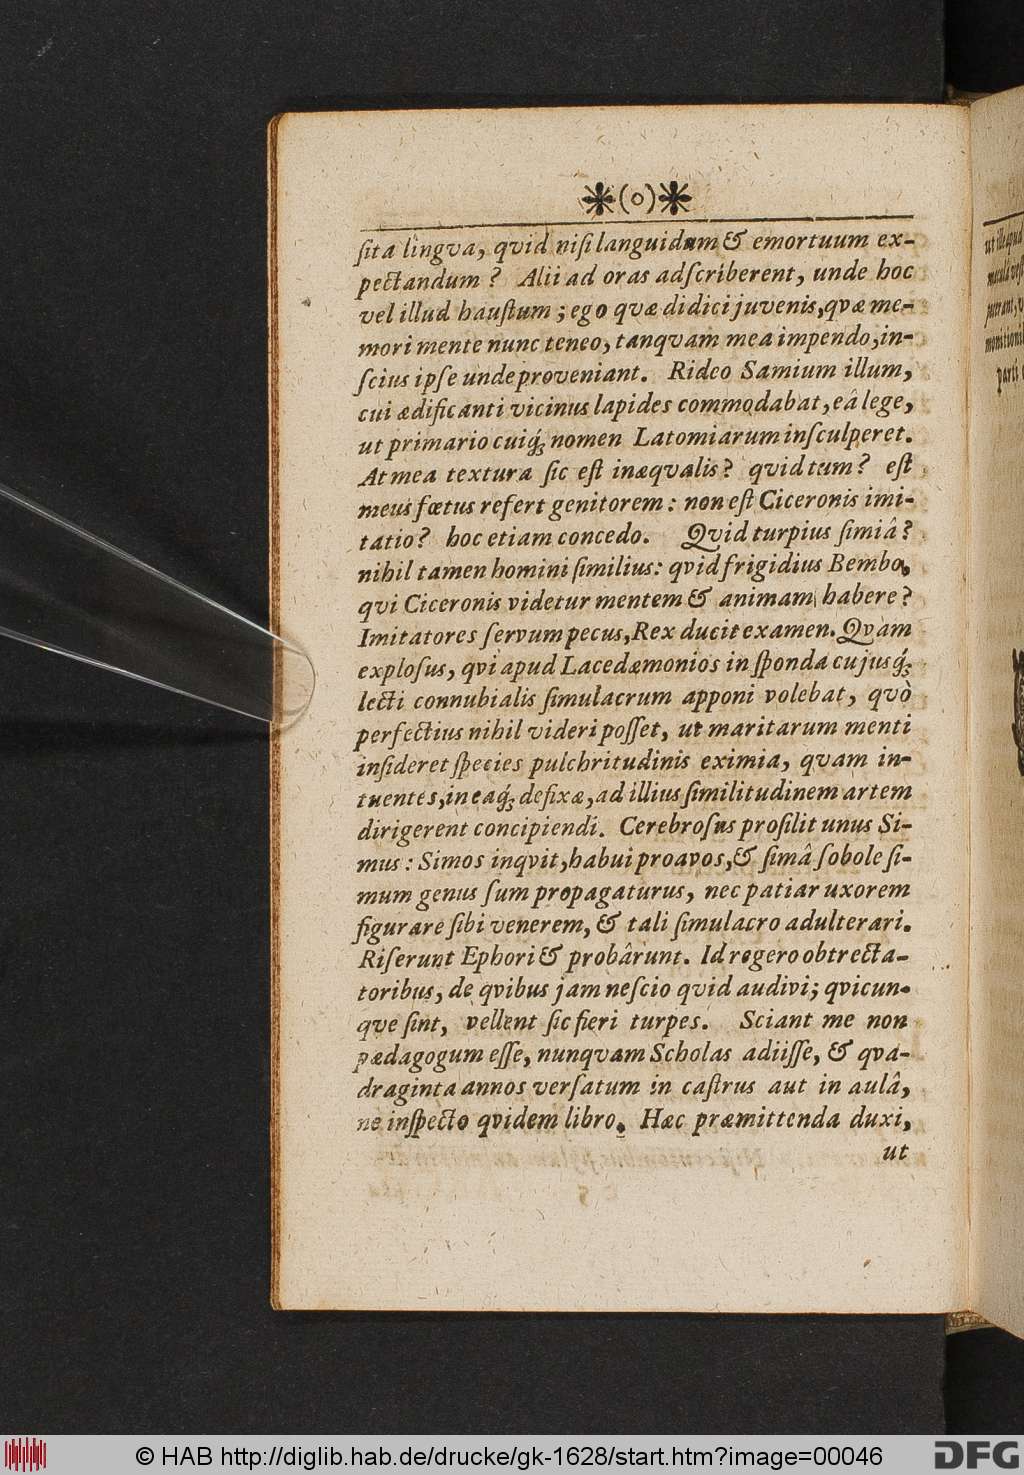 ſita lingva, qvid niſi languidum & emortuum ex-
pectandum? Alii ad oras adſcriberent, unde hoc
vel illud hauſtum; ego qvæ didici juvenis, qvæ me-
mori mente nunc teneo, tanqvam mea impendo, in-
ſcius ipſe unde proveniant. Rideo Samium illum,
cui ædificanti vicinus lapides commodabat, eâ lege,
ut primario cuiq́; nomen Latomiarum inſculperet.
At mea textura ſic eſt inæqvalis? qvid tum? eſt
meus fœtus refert genitorem: non eſt Ciceronis imi-
tatio? hoc etiam concedo. Qvid turpius ſimiâ?
nihil tamen homini ſimilius: qvid frigidius Bembo,
qvi Ciceronis videtur mentem & animam habere?
Imitatores ſervum pecus, Rex ducit examen. Qvam
exploſus, qvi apud Lacedæmonios in ſponda cujusq́;
lecti connubialis ſimulacrum apponi volebat, qvò
perfectius nihil videri poſſet, ut maritarum menti
inſideret ſpecies pulchritudinis eximia, qvam in-
tuentes, in eaq́; defixæ, ad illius ſimilitudinem artem
dirigerent concipiendi. Cerebroſus proſilit unus Si-
mus: Simos inqvit, habui proavos, & ſimâ ſobole ſi-
mum genus ſum propagaturus, nec patiar uxorem
figurare ſibi venerem, & tali ſimulacro adulterari.
Riſerunt Ephori & probârunt. Id regero obtrecta-
toribus, de qvibus jam neſcio qvid audivi; qvicun-
que ſint, vellent ſic fieri turpes. Sciant me non
pædagogum eſſe, nunqvam Scholas adiiſſe, & qva-
draginta annos verſatum in caſtrus aut in aulâ,
ne inſpecto qvidem libro. Hæc præmittenda duxi,
ut
ut ille apud
parti
© HAB http://diglib.hab.de/drucke/gk-1628/start.htm?image=00046
DFG